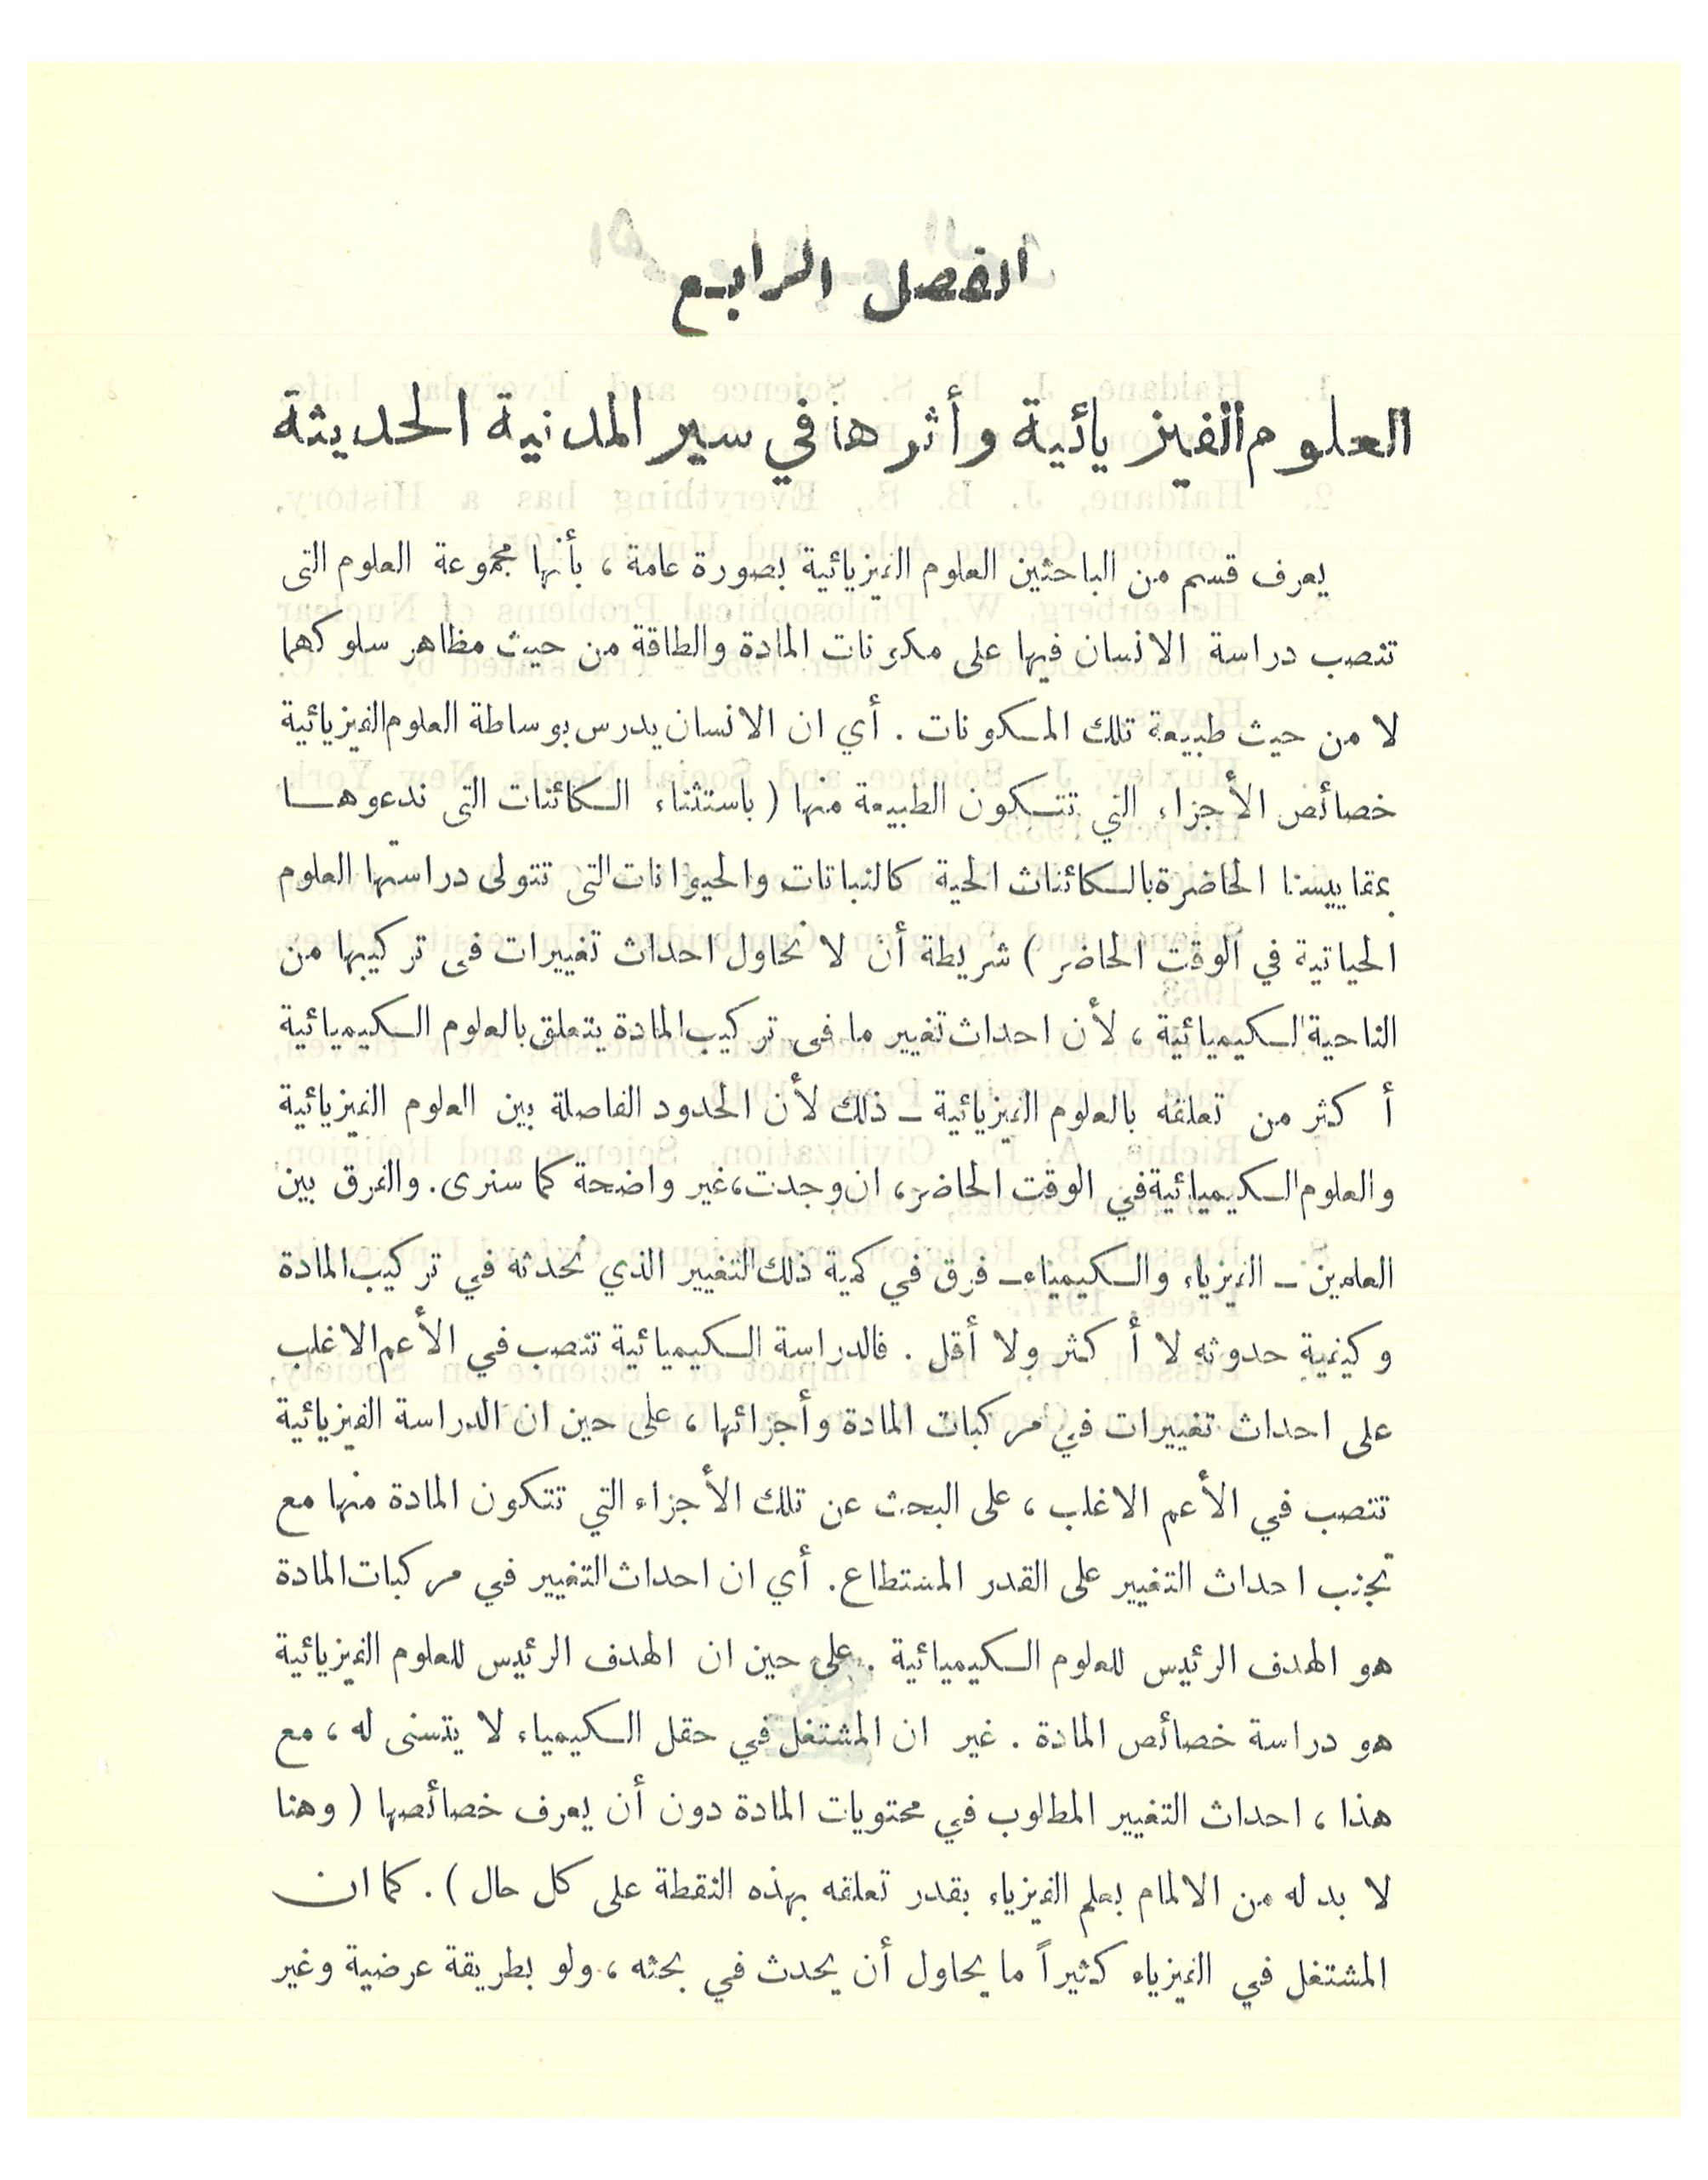 الفصل الرابع
العلوم الفيزيائية وأثرها في سير المدنية الحديثة
يعرف قسم من الباحثين العلوم الفيزيائية بصورة عامة ، بأنها مجموعة العلوم التى
تنصب دراسة الانسان فيها على مكونات المادة والطاقة من حيث مظاهر سلوكهما
لا من حيث طبيعة تلك المكونات . أي ان الانسان يدرس بوساطة العلوم الفيزيائية
خصائص الأجزاء التي تتكون الطبيعة منها ( باستثناء الكائنات التى ندعوها
بمقاييسنا الحاضرة بالكائنات الحية كالنباتات والحيوانات التى تتولى دراستها العلوم
الحياتية في الوقت الحاضر ) شريطة أن لا نحاول احداث تغييرات فى تركيبها من
الناحية الكيميائية ، لأن احداث تغيير ما فى تركيب المادة يتعلق بالعلوم الكيميائية
أكثر من تعلقه بالعلوم الفيزيائية ــ ذلك لأن الحدود الفاصلة بين العلوم الفيزيائية
والعلوم الكيميائية في الوقت الحاضر ، ان وجدت ، غير واضحة كما سنرى . والفرق بين
العلمين ــ الفيزياء والكيمياء ــ فرق في كمية ذلك التغيير الذي نحدثه في تركيب المادة
وكيفية حدوثه لا أكثر ولا أقل . فالدراسة الكيميائية تنصب في الأعم الاغلب
على احداث تغييرات في مركبات المادة وأجزائها ، على حين ان الدراسة الفيزيائية
تنصب في الأعم الاغلب ، على البحث عن تلك الأجزاء التي تتكون المادة منها مع
تجنب احداث التغيير على القدر المستطاع . أي ان احداث التغيير في مركبات المادة
هو الهدف الرئيس للعلوم الكيميائية . على حين ان الهدف الرئيس للعلوم الفيزيائية
هو دراسة خصائص المادة . غير ان المشتغل في حقل الكيمياء لا يتسنى له ، مع
هذا ، احداث التغيير المطلوب في محتويات المادة دون أن يعرف خصائصها ( وهنا
لا بد له من الالمام بعلم الفيزياء بقدر تعلقه بهذه النقطة على كل حال ) . كما ان
المشتغل في الفيزياء كثيراً ما يحاول أن يحدث في بحثه ، ولو بطريقة عرضية وغير